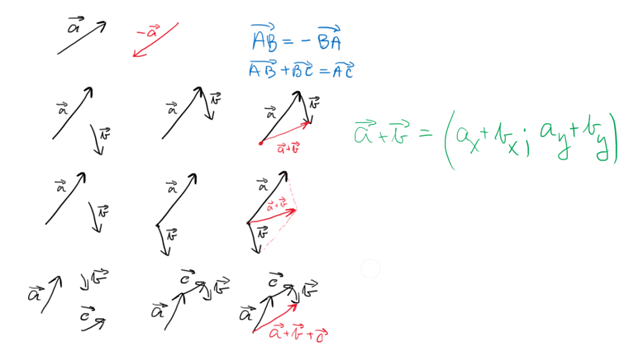 a⃗ -a⃗ A⃗B⃗ = - B⃗A⃗
A⃗B⃗ + B⃗C⃗ = A⃗C⃗
a⃗ b⃗ a⃗ b⃗ a⃗ b⃗ a⃗+b⃗
a⃗ + b⃗ = (aₓ + bₓ; a_y + b_y)
a⃗ b⃗ a⃗ b⃗ a⃗ a⃗+b⃗ b⃗
a⃗ b⃗ c⃗ a⃗ c⃗ b⃗ a⃗ c⃗ b⃗
a⃗+b⃗+c⃗